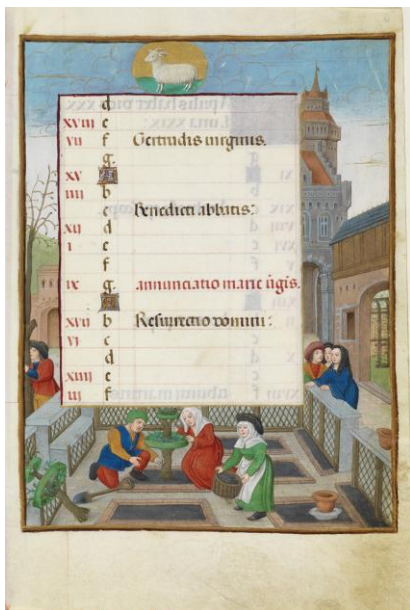 d
xviii e
vii f Gertrudis virginis.
g
xv A
iiii b
Benedicti abbatis:
xii d
i e
f
ix g annunciatio marie v̄gis.
A
xvii b Resurrectio domini:
vi c
d
xiiii e
iii f